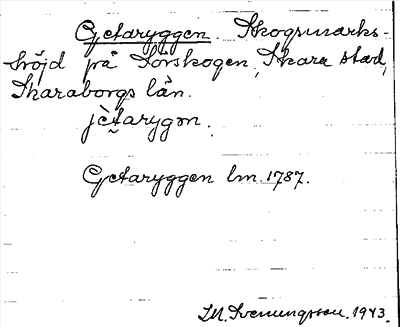 Getaryggen. Skogsmarks-
höjd på Sörskogen, Skara stad,
Skaraborgs län.
jètarygon.
Getaryggen lm. 1787.
M. Svenungsson. 1943.